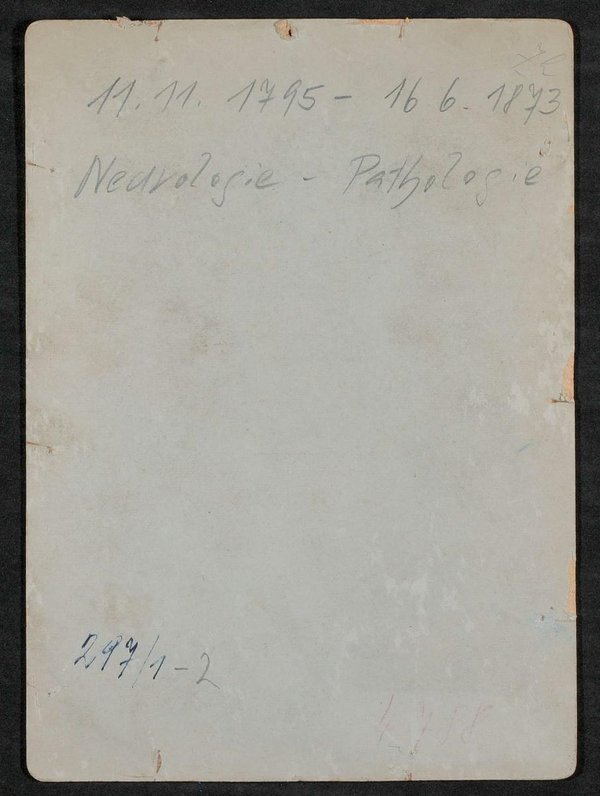 11. 11. 1795 - 16 6. 1873
Neurologie - Pathologie
297/1-2